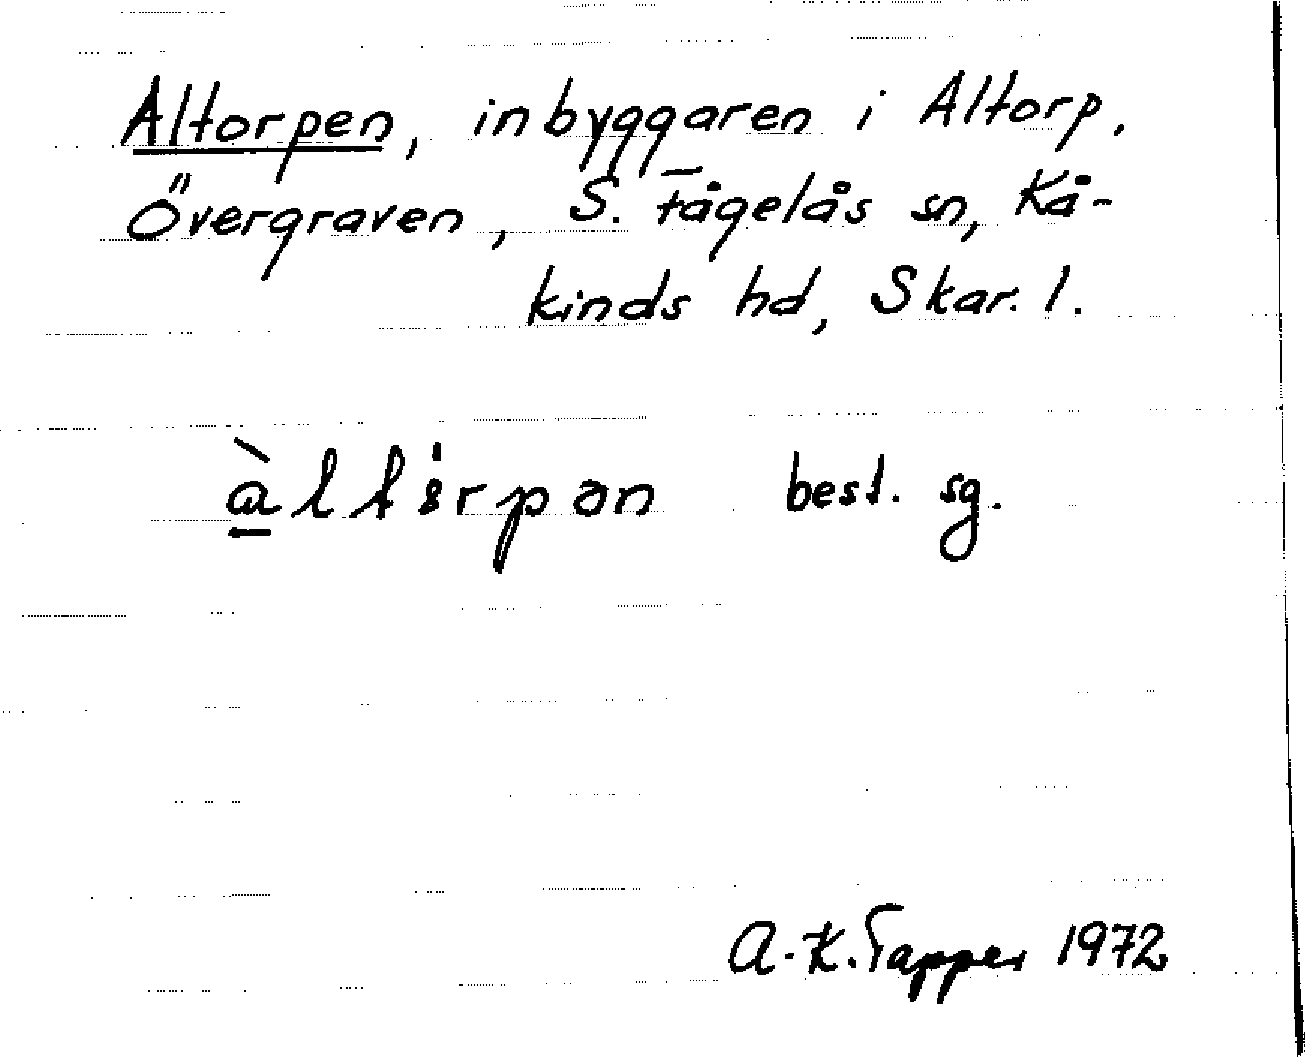 Altorpen, inbyggaren i Altorp.
Övergraven, S. Fågelås sn, Kå-
kinds hd, Skar. l.
best. sg.
A.-K. Tapper 1972